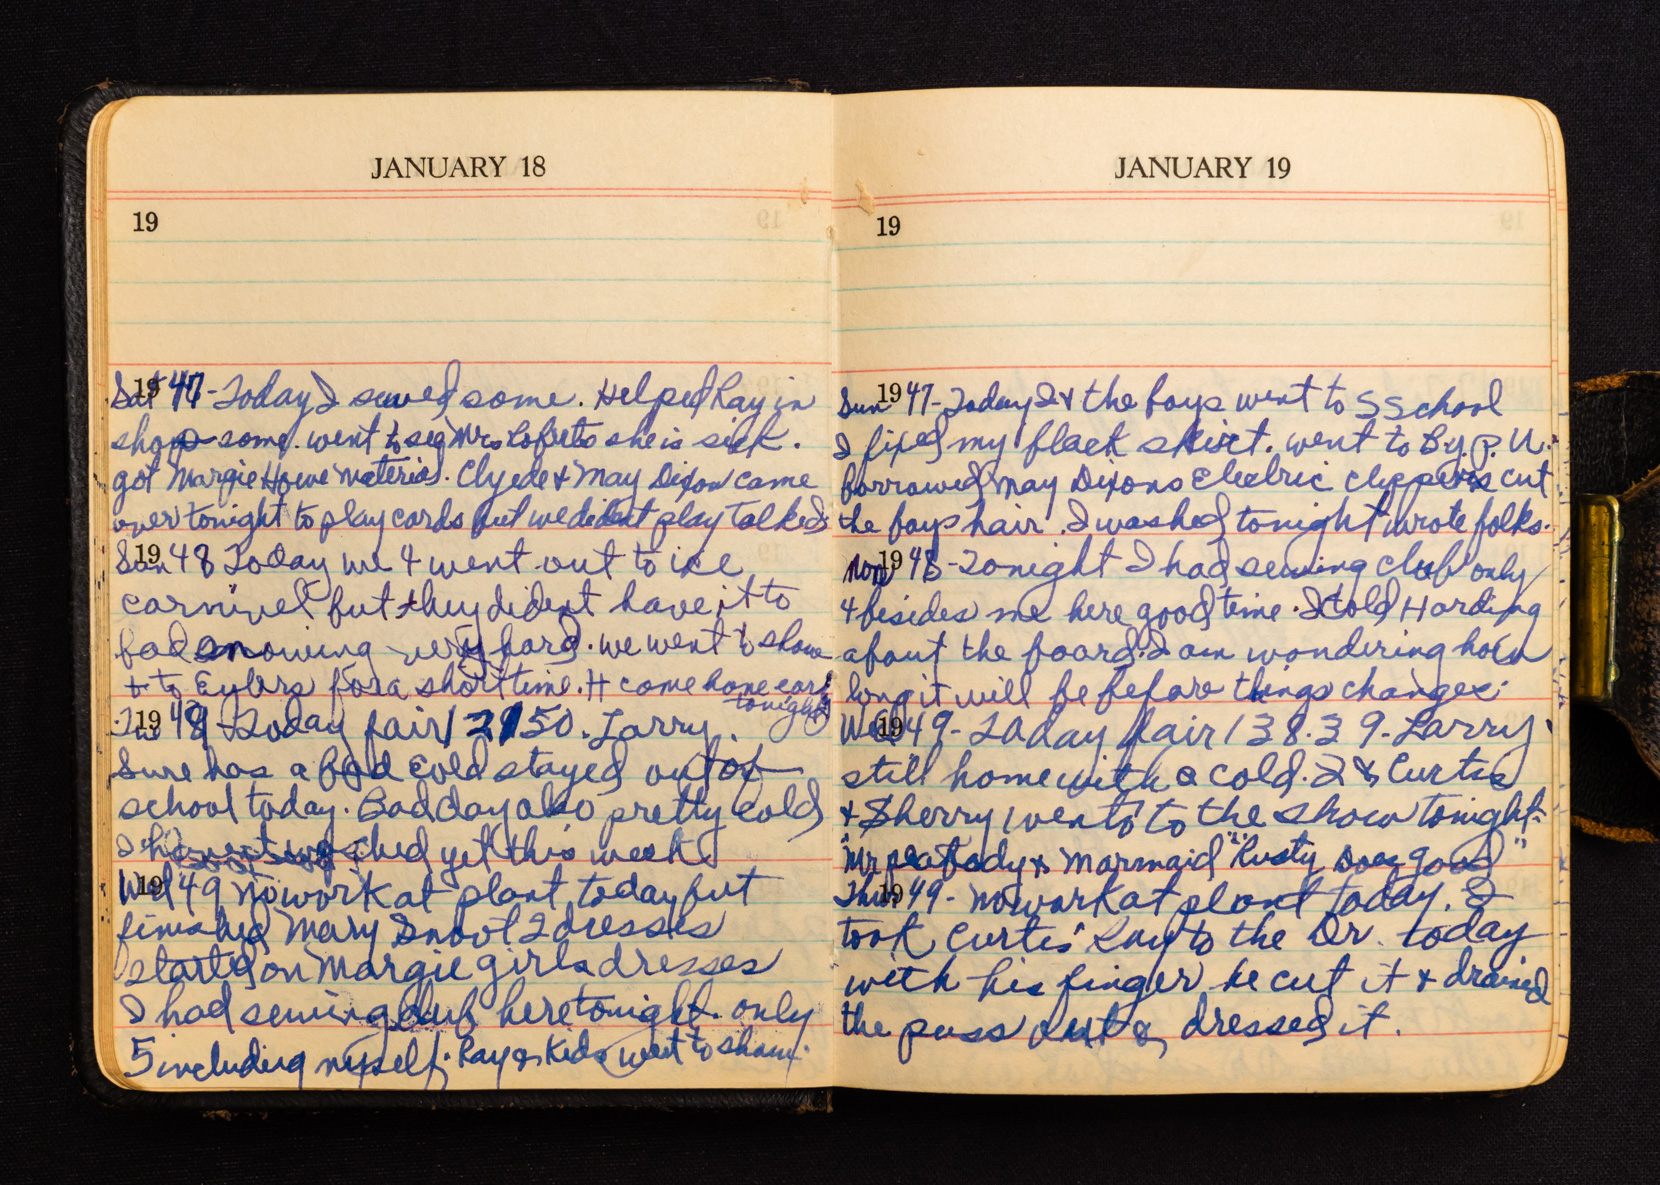 JANUARY 18
19
19
Sat 47- Today I sewed some. Helped Ray in
shop some. went to see Mrs she is sick.
got Margie Howe material. Clyede & May Dixon came
over tonight to play cards but we dident play talked
19
Sun 48 Today we 4 went out to ice
carnivel but they dident have it to
bad snowing very hard. we went to show
& to Eylers for a short time. H come home early
tonight
19
49 - Today fair 50. Larry.
Sure has a bad cold stayed out of
school today. Bad day also pretty cold
I havent washed yet this week.
19
Wed 49 no work at plant today but
finished Mary Snoot 2 dresses
started on Margie girls dresses
I had sewing club here tonight. only
5 including myself. Ray & Kids went to show.
JANUARY 19
19
19
Sun 47- Today I & the boys went to S School
I fixed my black skirt. went to B.y.p.U.
borrowed May Dixons Electric clippers cut
the boys hair. I washed tonight wrote folks.
19
Mon 48- Tonight I had sewing club only
4 besides me here good time. I told Harding
about the board. I am wondering how
long it will be before things changes.
19
Wed 49- Today fair 138.39- Larry
still home with a cold. I & Curtis
& Sherry went to to the show tonight.
"Mr peabody & Marmaid" "Rusty Does good"
19
Thur 49- no work at plant today. I
took Curtis Ray to the Dr. today
with his finger he cut it & drained
the puss out & dressed it.